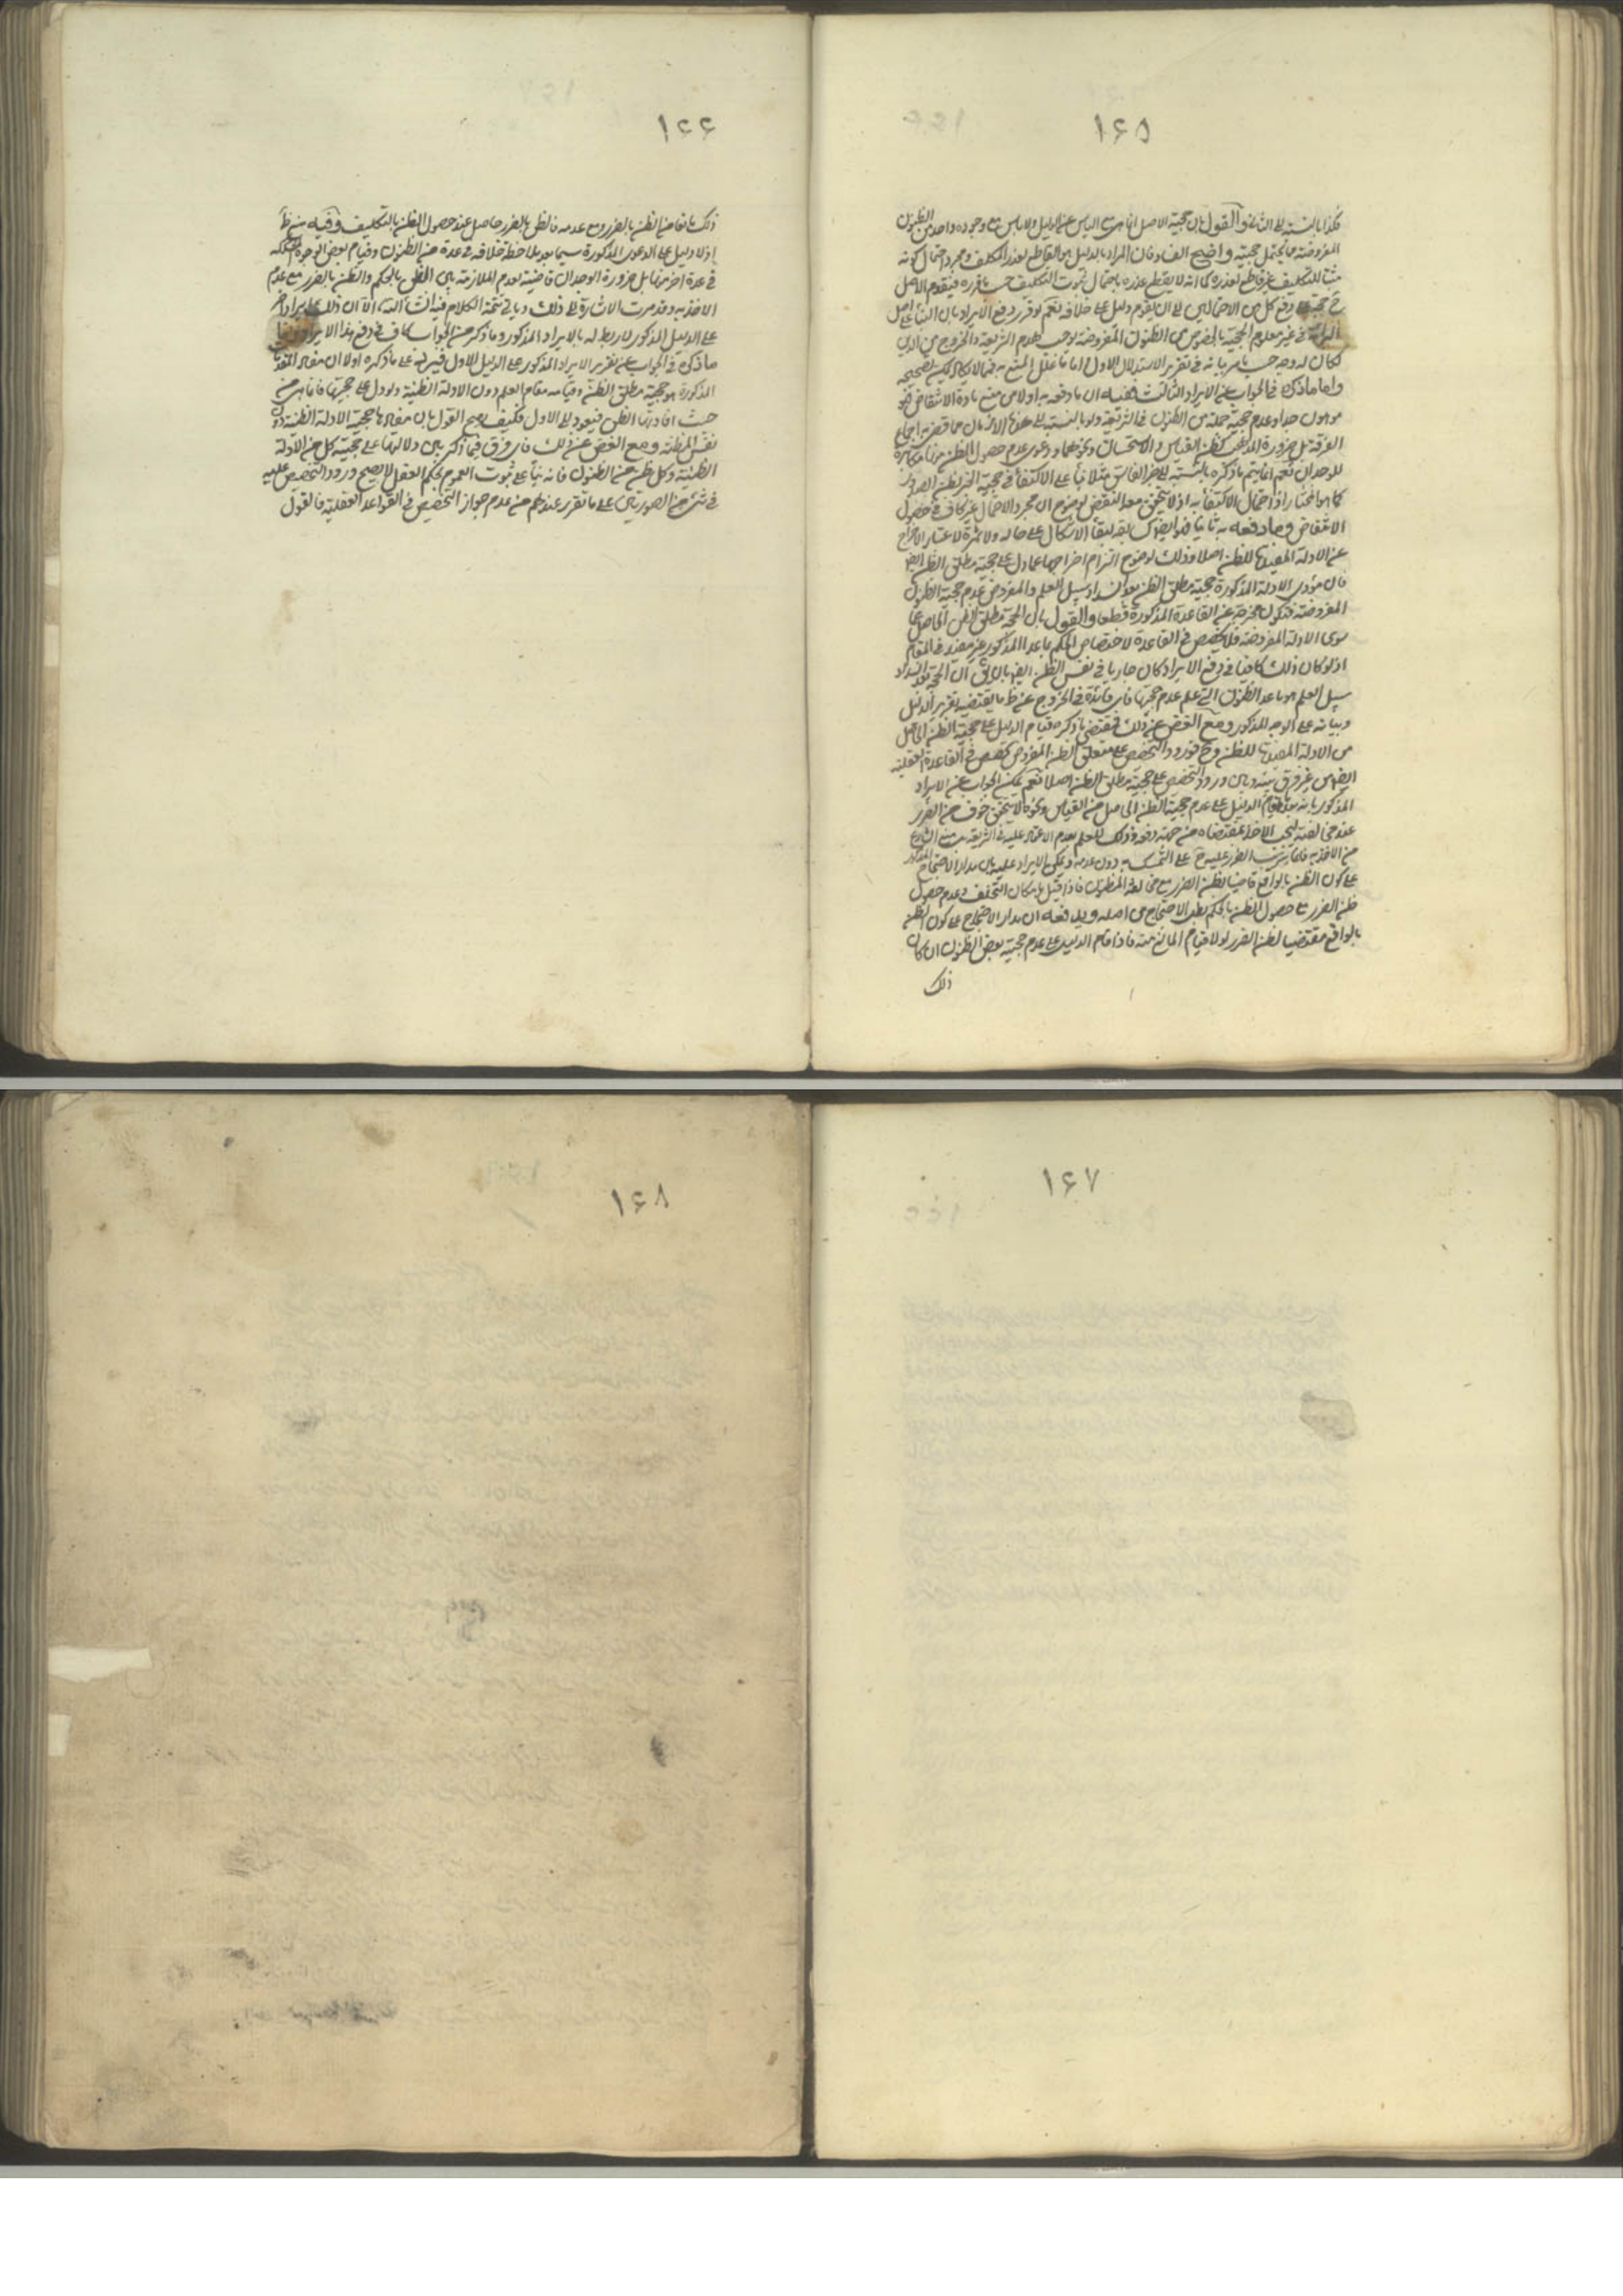 ۱۶۵
فكذا بالنسبة الى الثاني والقول بان حجية الاصل انما هى مع الياس عن الدليل ولا ياس مع وجوده واحد من الظنون
المفروضة مما يحتمل حجيته واضح الفساد فان المراد بالدليل هو القاطع لعذر المكلف ومجرد احتمال كونه
مثبتا للتكليف غير قاطع لعذره كما انه لا يقطع عذره باحتمال ثبوت التكليف حسب ما قرره فيقدم الاصل
في رفع كل من الاحتمالين الى ان يقوم دليل على خلافه نعم لو قرر دفع الايراد بان البناء على اصل
البراءة في غير معلوم الحجية بالخصوص من الظنون المفروضة يوجب هدم الشريعة والخروج من الدين
لكان له وجه حسب ما مر بيانه في تقرير الاستدلال الاول اما ما علل المنع به فمما لا يكاد يمكن تصحيحه
واما ما ذكره في الجواب عن الايراد الثالث ففيه ان ما دفعه به اولا من منع مادة الانتقاض فهو
موهون جدا وعدم حجية جملة من الظنون في الشريعة ولو بالنسبة الى هذه الازمان مما قضى به اجماع
الفرقة بل ضرورة المذهب كظن القياس والاستحسان ونحوهما ودعوى عدم حصول الظن منها مكابرة
للوجدان نعم انما يتم ما ذكره بالنسبة الى خبر الفاسق مثلا بناء على الاكتفاء في حجية الخبر بظن الصدور
كما هو المختار اذ احتمال الاكتفاء به اذ لا يتحقق معه النقض لوضوح ان مجرد الاحتمال غير كاف في حصول
الانتقاض وما دفعه به ثانيا فهو ايضا كسابقه لبقاء الاشكال على حاله ولا ثمرة لاعتبار الاخراج
عن الادلة المفيدة للظن اصلا وذلك لوضوح التزام اخراجها عما دل على حجية مطلق الظن ايضا
فان مؤدى الادلة المذكورة حجية مطلق الظن بعد انسداد سبيل العلم والمفروض عدم حجية الظنون
المفروضة فتكون مخرجة عن القاعدة المذكورة قطعا والقول بان الحجة مطلق الظن الحاصل عما
سوى الادلة المفروضة فلا تخصيص في القاعدة لاختصاص الحكم بما عدا المذكور غير مفيد في المقام
اذ لو كان ذلك كافيا في دفع الايراد كان جاريا في نفس الظن ايضا بان يق ان الحجة بعد انسداد
سبيل العلم هو ما عدا الظنون التي علم عدم حجيتها فاى فائدة في الخروج عن ظ ما يقتضيه تقرير الدليل
وبيانه على الوجه المذكور ومع الغض عن ذلك فمقتضى ما ذكره قيام الدليل على حجية الظن الحاصل
من الادلة المفيدة للظن وح فورود التخصيص على متعلق الظن المفروض تخصيص في القاعدة العقلية
ايضا من غير فرق بينه وبين ورود التخصيص على حجية مطلق الظن اصلا نعم يمكن الجواب عن الايراد
المذكور بانه بعد قيام الدليل على عدم حجية الظن الحاصل من القياس ونحوه لا يتحقق خوف من الضرر
عند مخالفته ليجب الاخذ بمقتضاه من جهة دفعه وذلك للعلم بعدم الاعتماد عليه في الشريعة مع منع الشارع
من الاخذ به فانما يترتب الضرر عليه ح على التمسك به دون عدمه ويمكن الايراد عليه بان مدار الاحتجاج المذكور
على كون الظن بالواقع قاضيا بظن الضرر مع مخالفة المظنون فاذا قيل بامكان التخلف وعدم حصول
ظن الضرر مع حصول الظن بالحكم بطل الاحتجاج من اصله ويدفعه ان مدار الاحتجاج على كون الظن
بالواقع مقتضيا لظن الضرر لولا قيام المانع منه فاذا قام الدليل على عدم حجية بعض الظنون ان كان
ذلك
۱۶۶
ذلك مانعا من الظن بالضرر ومع عدمه فالظن بالضرر حاصل عند حصول الظن بالتكليف وفيه منع ظ
اذ لا دليل على الدعوى المذكورة سيما بعد ملاحظة خلافه في عدة من الظنون وقيام بعض الوجوه المشككة
في عدة اخر منها بل ضرورة الوجدان قاضية بعدم الملازمة بين الظن بالحكم والظن بالضرر مع عدم
الاخذ به وقد مرت الاشارة الى ذلك وياتي تتمة الكلام فيه انشاء الله الا ان ذلك ايراد اخر
على الدليل المذكور لا ربط له بالايراد المذكور وما ذكر من الجواب كاف في دفع هذا الايراد
ما ذكره في الجواب عن تقرير الايراد المذكور على الدليل الاول فيرد على ما ذكره اولا ان مفاد المقدمات
المذكورة هو حجية مطلق الظن وقيامه مقام العلم دون الادلة الظنية ولو دل على حجيتها فانما هى من
حيث افادتها الظن فيعود الى الاول فكيف يصح القول بان مفادها حجية الادلة الظنية دون
نفس المظنة ومع الغض عن ذلك فاى فرق فيما ذكر بين دلالتها على حجية كل من الادلة
الظنية وكل ظن من الظنون فانه بناء على ثبوت العموم بحكم العقل لا يصح ورود التخصيص عليه
في شئ من الصورتين على ما تقرر عندهم من عدم جواز التخصيص في القواعد العقلية فالقول
۱۶۷
۱۶۸